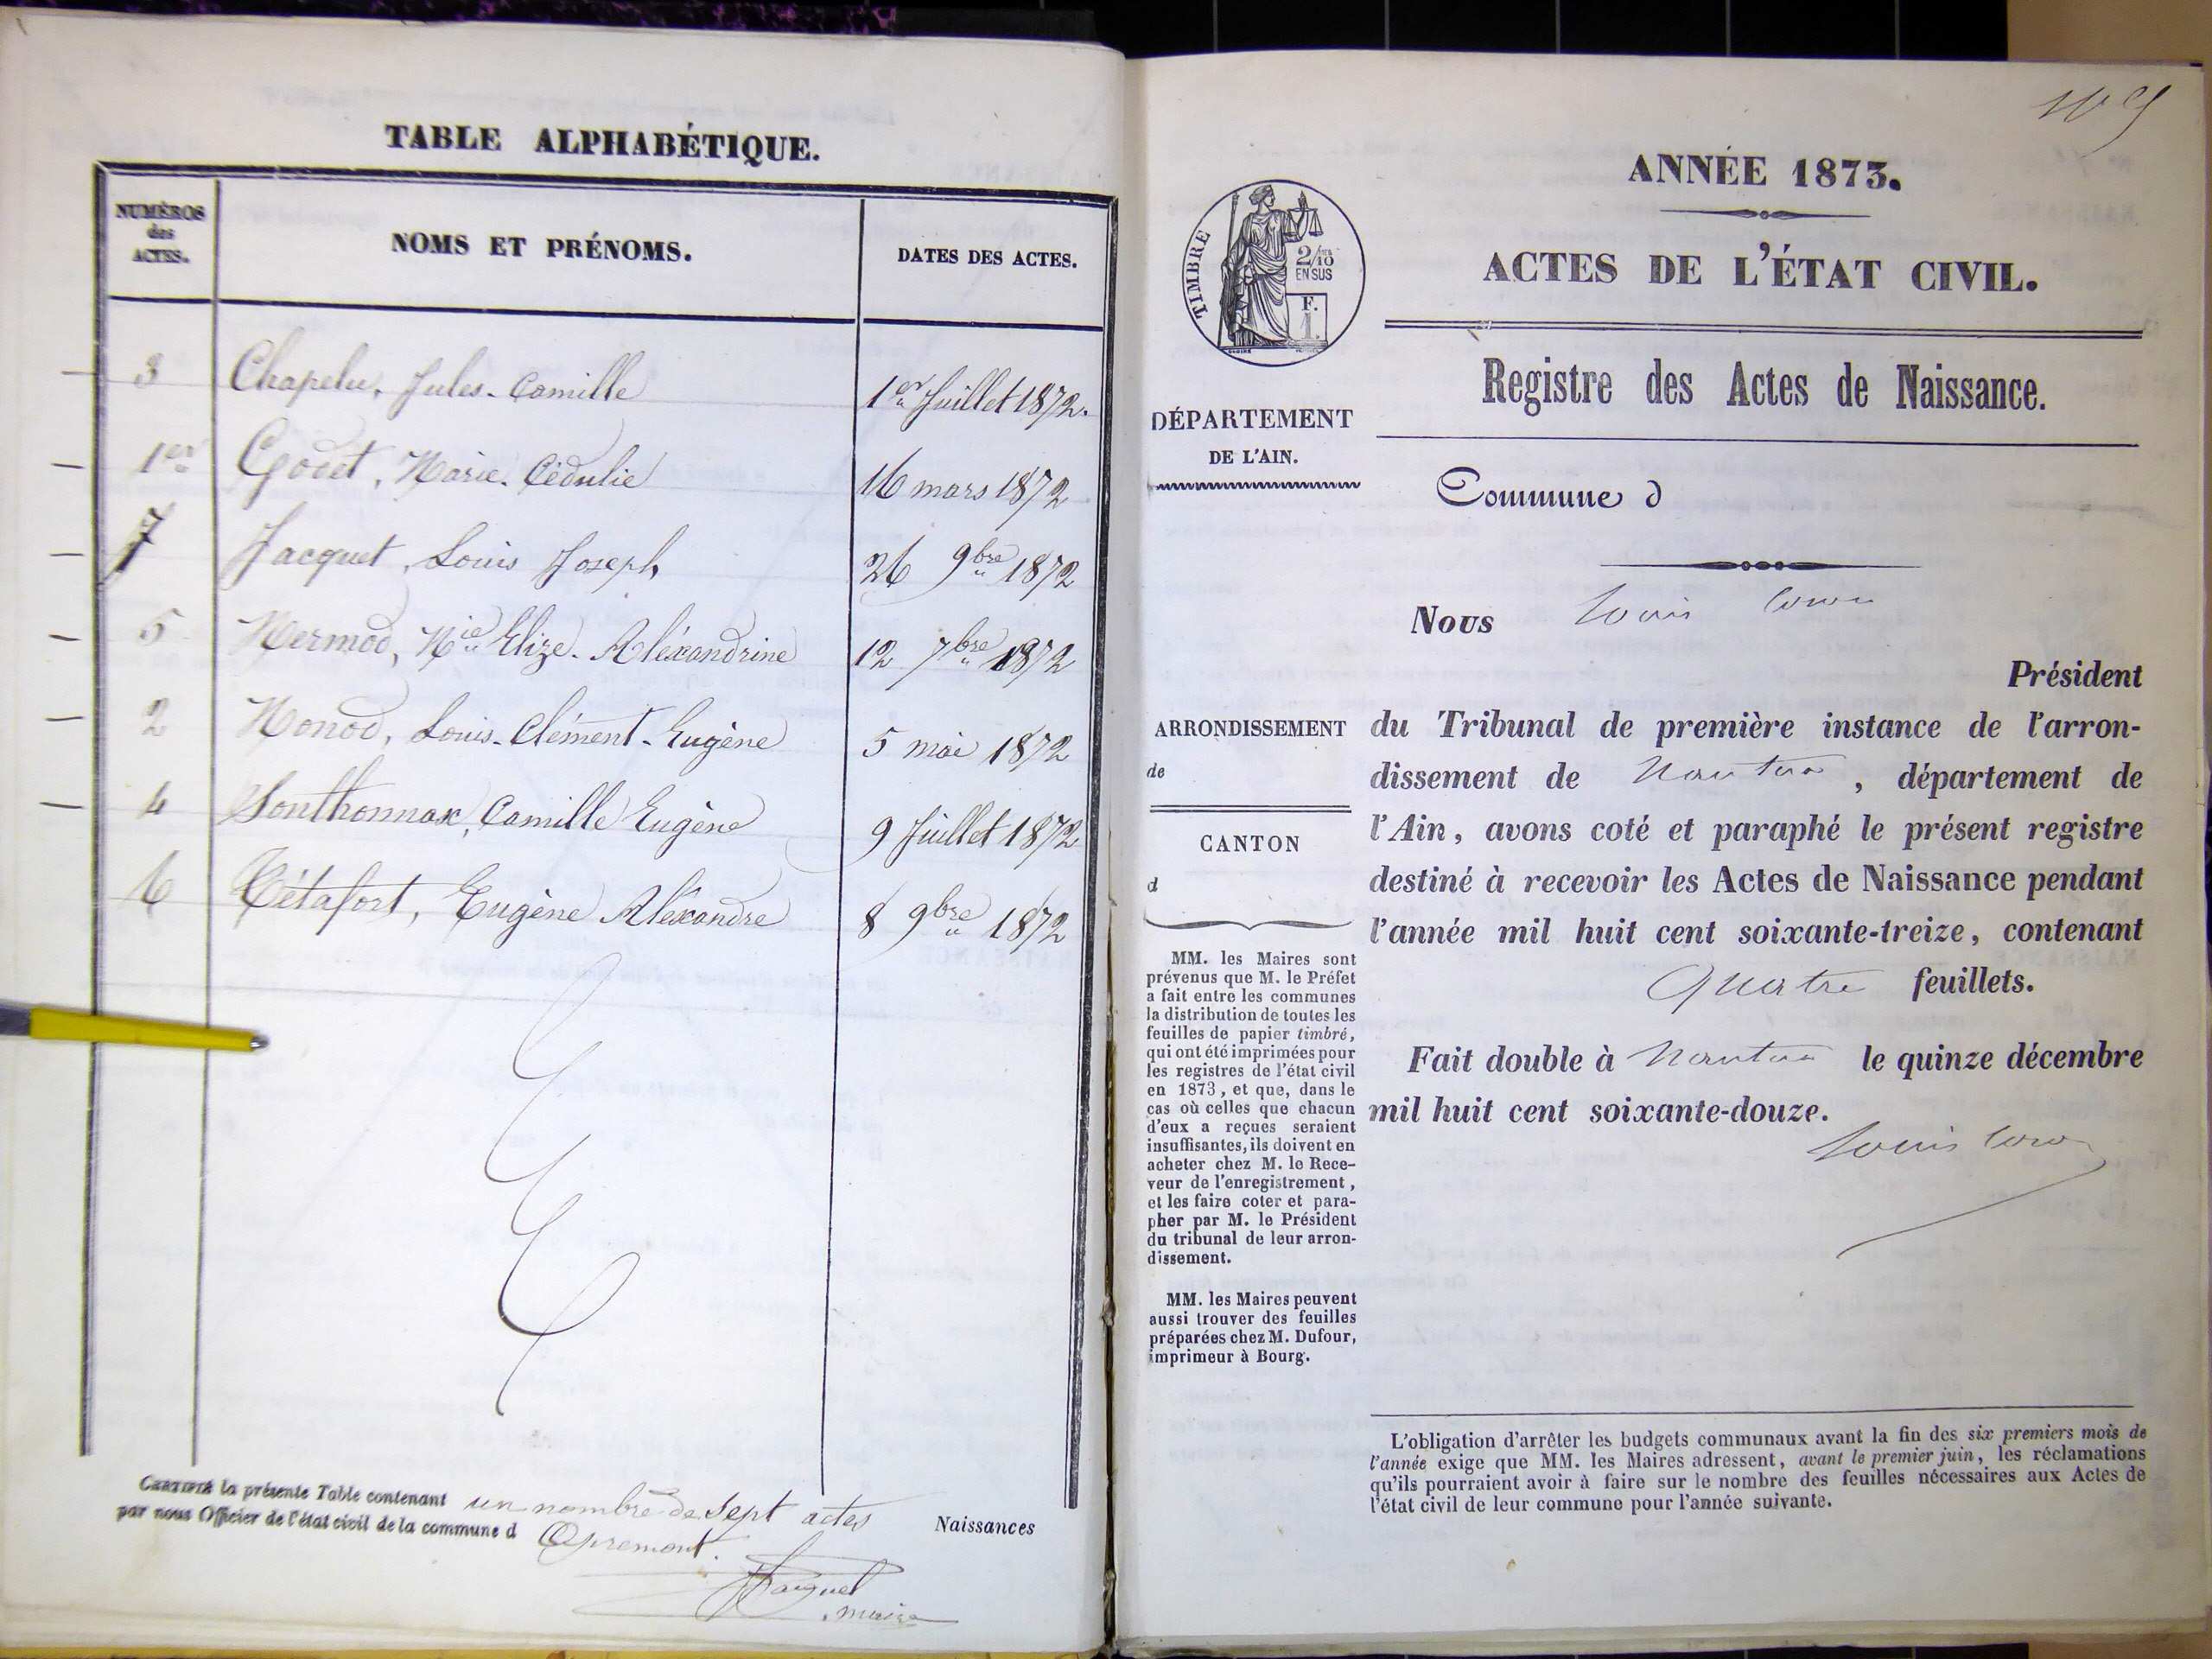 TABLE ALPHABÉTIQUE.
NUMÉROS des ACTES.
NOMS ET PRÉNOMS.
DATES DES ACTES.
3 Chapelu, Jules-Camille 1er Juillet 1872.
1er Godet, Marie-Cédulie 16 mars 1872
7 Jacquet, Louis Joseph 26 9bre 1872
5 Mermod, Mie Elize-Aléxandrine 12 7bre 1872
2 Monod, Louis-Clément-Eugène 5 mai 1872
4 Sonthonnax, Camille Eugène 9 Juillet 1872
6 Tétafort, Eugène Aléxandre 8 9bre 1872
CERTIFIÉ la présente Table contenant un nombre de sept actes
par nous Officier de l'état civil de la commune d Apremont.
Naissances
maire
ANNÉE 1873.
ACTES DE L'ÉTAT CIVIL.
TIMBRE
2/10 EN SUS
F.
1.
Registre des Actes de Naissance.
DÉPARTEMENT
DE L'AIN.
Commune d
Nous Louis
Président
ARRONDISSEMENT
de
CANTON
d
du Tribunal de première instance de l'arron-
dissement de Nantua, département de
l'Ain, avons coté et paraphé le présent registre
destiné à recevoir les Actes de Naissance pendant
l'année mil huit cent soixante-treize, contenant
Quatre feuillets.
Fait double à Nantua le quinze décembre
mil huit cent soixante-douze.
Louis
MM. les Maires sont
prévenus que M. le Préfet
a fait entre les communes
la distribution de toutes les
feuilles de papier timbré,
qui ont été imprimées pour
les registres de l'état civil
en 1873, et que, dans le
cas où celles que chacun
d'eux a reçues seraient
insuffisantes, ils doivent en
acheter chez M. le Rece-
veur de l'enregistrement,
et les faire coter et para-
pher par M. le Président
du tribunal de leur arron-
dissement.
MM. les Maires peuvent
aussi trouver des feuilles
préparées chez M. Dufour,
imprimeur à Bourg.
L'obligation d'arrêter les budgets communaux avant la fin des six premiers mois de
l'année exige que MM. les Maires adressent, avant le premier juin, les réclamations
qu'ils pourraient avoir à faire sur le nombre des feuilles nécessaires aux Actes de
l'état civil de leur commune pour l'année suivante.